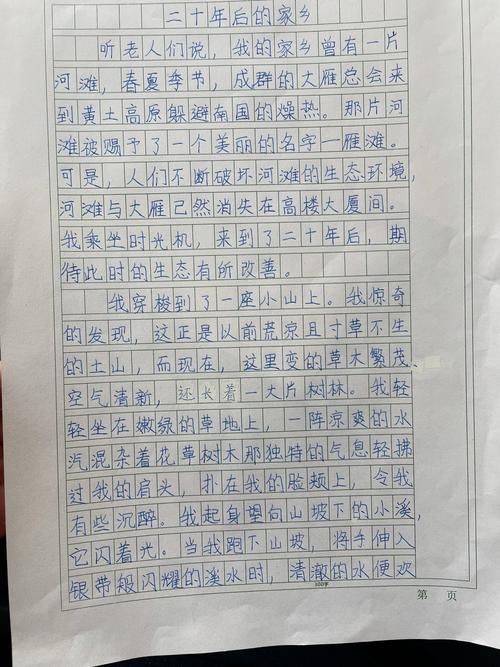 二十年后的家乡
听老人们说，我的家乡曾有一片
河滩，春夏季节，成群的大雁总会来
到黄土高原躲避南国的燥热。那片河
滩被赐予了一个美丽的名字—雁滩。
可是，人们不断破坏河滩的生态环境，
河滩与大雁已然消失在高楼大厦间。
我乘坐时光机，来到了二十年后，期
待此时的生态有所改善。
我穿梭到了一座小山上。我惊奇
的发现，这正是以前荒凉且寸草不生
的土山，而现在，这里变的草木繁茂、
空气清新，还长着一大片树林。我轻
轻坐在嫩绿的草地上，一阵凉爽的水
汽混杂着花草树木那独特的气息轻拂
过我的肩头，扑在我的脸颊上，令我
有些沉醉。我起身望向山坡下的小溪，
它闪着光。当我跑下山坡，将手伸入
银带般闪耀的溪水时，清澈的水便欢
300字
第 页